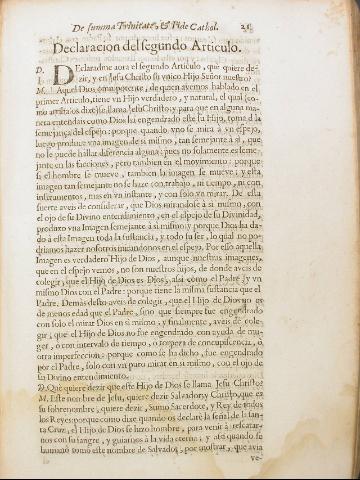 De summa Trinitate, & Fide Cathol. 21
Declaracion del segundo Articulo.
D. DEclaradme aora el segundo Articulo, què quiere de-
zir, y en Jesu Christo su vnico Hijo Señor nuestro?
M. Aquel Dios omnipotente, de quien avemos hablado en el
primer Articulo, tiene vn Hijo verdadero, y natural, el qual (co-
mo aora os dixe) se llama Jesu Christo; y para que en alguna ma-
nera entendais como Dios ha engendrado este su Hijo, toma d la
semejança del espejo: porque quando vno se mira à vn espejo,
luego produce vna imagen de si mismo, tan semejante à si, que
no se puede hallar diferencia alguna; pues no solamente es seme-
jante en las facciones, pero tambien en el movimiento: porque
si el hombre se mueve, tambien la imagen se mueve; y esta
imagen tan semejante no se haze con trabajo, ni tiempo, ni con
instrumentos, mas en vn instante, y con solo vn mirar. De esta
suerte aveis de considerar, que Dios mirandose à si mismo, con
el ojo de su Divino entendimiento, en el espejo de su Divinidad,
produxo vna Imagen semejante à si mismo; y porque Dios ha da-
do à esta Imagen toda la sustancia, y todo su ser, lo qual no po-
driamos hazer nosotros mirandonos en el espejo. Por esso aquella
Imagen es verdadero Hijo de Dios, aunque nuestras imagenes,
que en el espejo vemos, no son nuestros hijos, de donde aveis de
colegir, que el Hijo de Dios es Dios, assi como el Padre, y vn
mismo Dios con el Padre: porque tiene la misma sustancia que el
Padre. Demàs desto aveis de colegir, que el Hijo de Dios no es
de menos edad que el Padre, sino que siempre fue engendrado
con solo el mirar Dios en si mismo, y finalmente, aveis de cole-
gir, que el Hijo de Dios no fue engendrado con ayuda de mu-
ger, ò con intervalo de tiempo, ò torpeza de concupiscencia, ò
otra imperfeccion: porque como se ha dicho, fue engendrado
por el Padre, solo con vn puro mirar en si mismo, con el ojo de
su Divino entendimiento.
D. Què quiere dezir que este Hijo de Dios se llama Jesu Christo?
M. Este nombre de Jesu, quiere dezir Salvador; y Christo, que es
su sobrenombre, quiere dezir, Sumo Sacerdote, y Rey de todos
los Reyes: porque como dixe quando os declarè la señal de la San-
ta Cruz, el Hijo de Dios se hizo hombre, para venir à rescatar-
nos con su sangre, y guiarnos à la vida eterna; y assi quando se
humanò tomò este nombre de Salvador, por mostrar, que avia
ve-